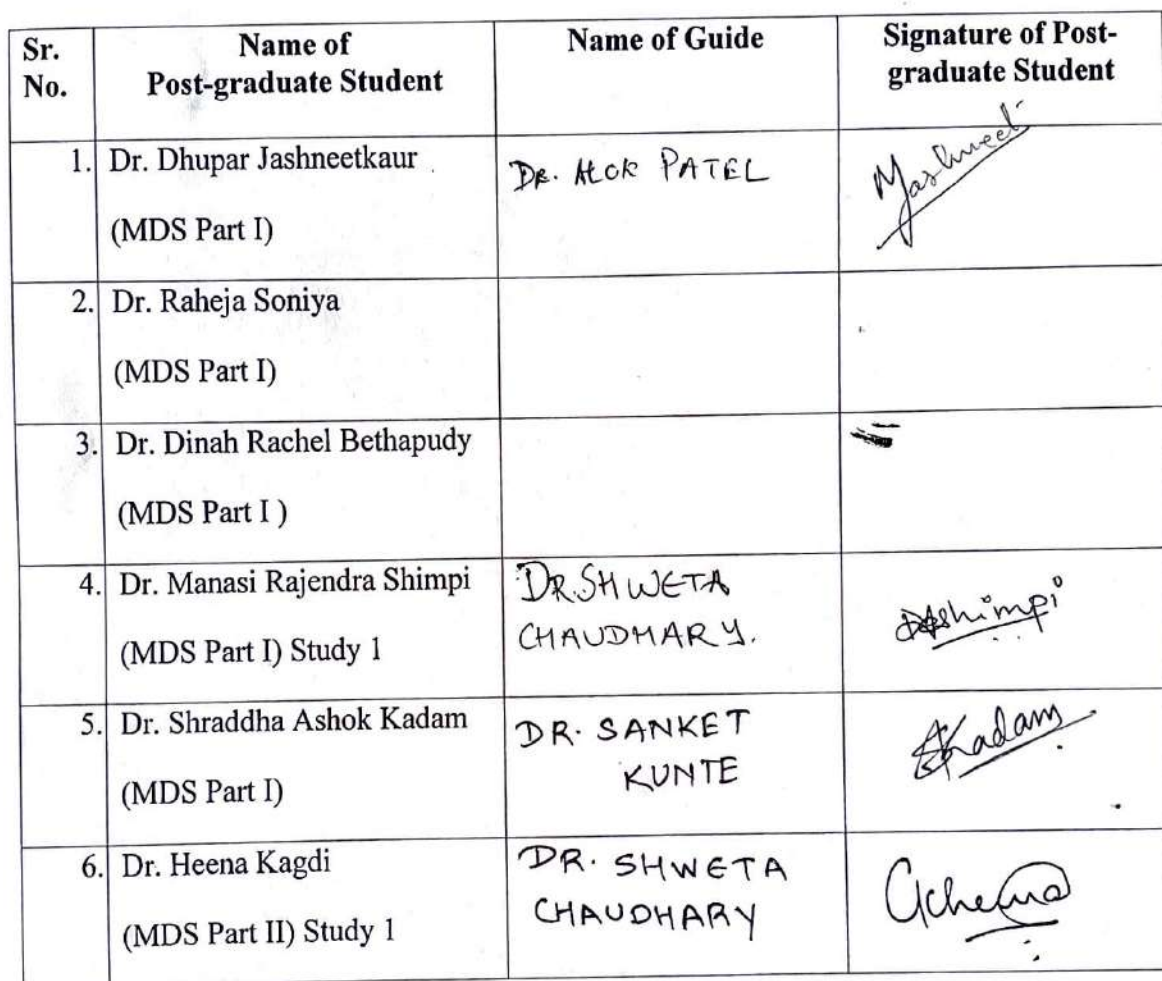 Sr. No.
Name of
Post-graduate Student
Name of Guide
Signature of Post-
graduate Student
1. Dr. Dhupar Jashneetkaur
(MDS Part I)
DR. ALOK PATEL
Jashneet
2. Dr. Raheja Soniya
(MDS Part I)
3. Dr. Dinah Rachel Bethapudy
(MDS Part I )
4. Dr. Manasi Rajendra Shimpi
(MDS Part I) Study 1
DR. SHWETA
CHAUDHARY.
Shimpi
5. Dr. Shraddha Ashok Kadam
(MDS Part I)
DR. SANKET
KUNTE
Kadam
6. Dr. Heena Kagdi
(MDS Part II) Study 1
DR. SHWETA
CHAUDHARY